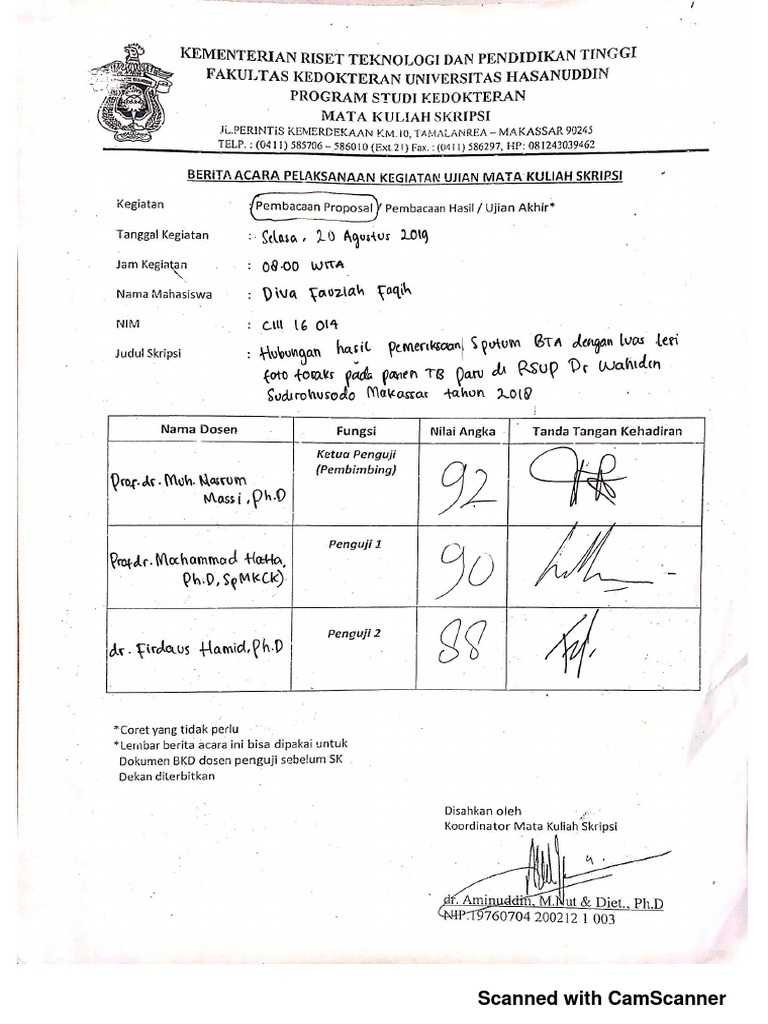 KEMENTERIAN RISET TEKNOLOGI DAN PENDIDIKAN TINGGI
FAKULTAS KEDOKTERAN UNIVERSITAS HASANUDDIN
PROGRAM STUDI KEDOKTERAN
MATA KULIAH SKRIPSI
JL.PERINTIS KEMERDEKAAN KM.10, TAMALANREA – MAKASSAR 90245
TELP. : (0411) 585706 – 586010 (Ext.21) Fax. : (0411) 586297, HP: 081243039462
BERITA ACARA PELAKSANAAN KEGIATAN UJIAN MATA KULIAH SKRIPSI
Kegiatan : Pembacaan Proposal / Pembacaan Hasil / Ujian Akhir*
Tanggal Kegiatan : Selasa, 20 Agustus 2019
Jam Kegiatan : 08.00 WITA
Nama Mahasiswa : Diva Fauziah Faqih
NIM : C111 16 014
Judul Skripsi : Hubungan hasil pemeriksaan Sputum BTA dengan luas lesi
foto toraks pada pasien TB paru di RSUP Dr Wahidin
Sudirohusodo Makassar tahun 2018
Nama Dosen Fungsi Nilai Angka Tanda Tangan Kehadiran
Prof. dr. Muh. Nasrum Massi, Ph.D Ketua Penguji (Pembimbing) 92
Prof.dr. Mochammad Hatta, Ph.D, SpMK(K) Penguji 1 90
dr. Firdaus Hamid, Ph.D Penguji 2 88
*Coret yang tidak perlu
*Lembar berita acara ini bisa dipakai untuk
Dokumen BKD dosen penguji sebelum SK
Dekan diterbitkan
Disahkan oleh
Koordinator Mata Kuliah Skripsi
dr. Aminuddin, M.Nut & Diet., Ph.D
NIP.19760704 200212 1 003
Scanned with CamScanner